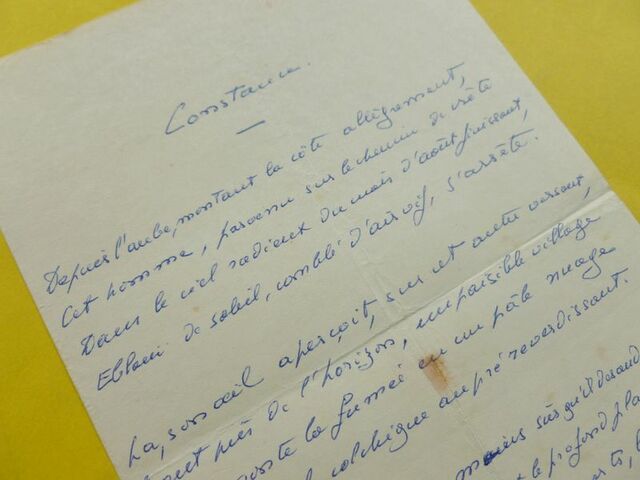 Constance.
Depuis l'aube, montant la côte allègrement,
Cet homme, parvenu sur le chemin de crête
Dans le ciel radieux du mois d'août finissant,
Ebloui de soleil, comblé d'air vif, s'arrête.
Là, son œil aperçoit, sur cet autre versant,
tout près de l'horizon, un paisible village
la fumée en un pâle nuage
colchique au pré reverdissant.
moins sûr qu'il
le profond